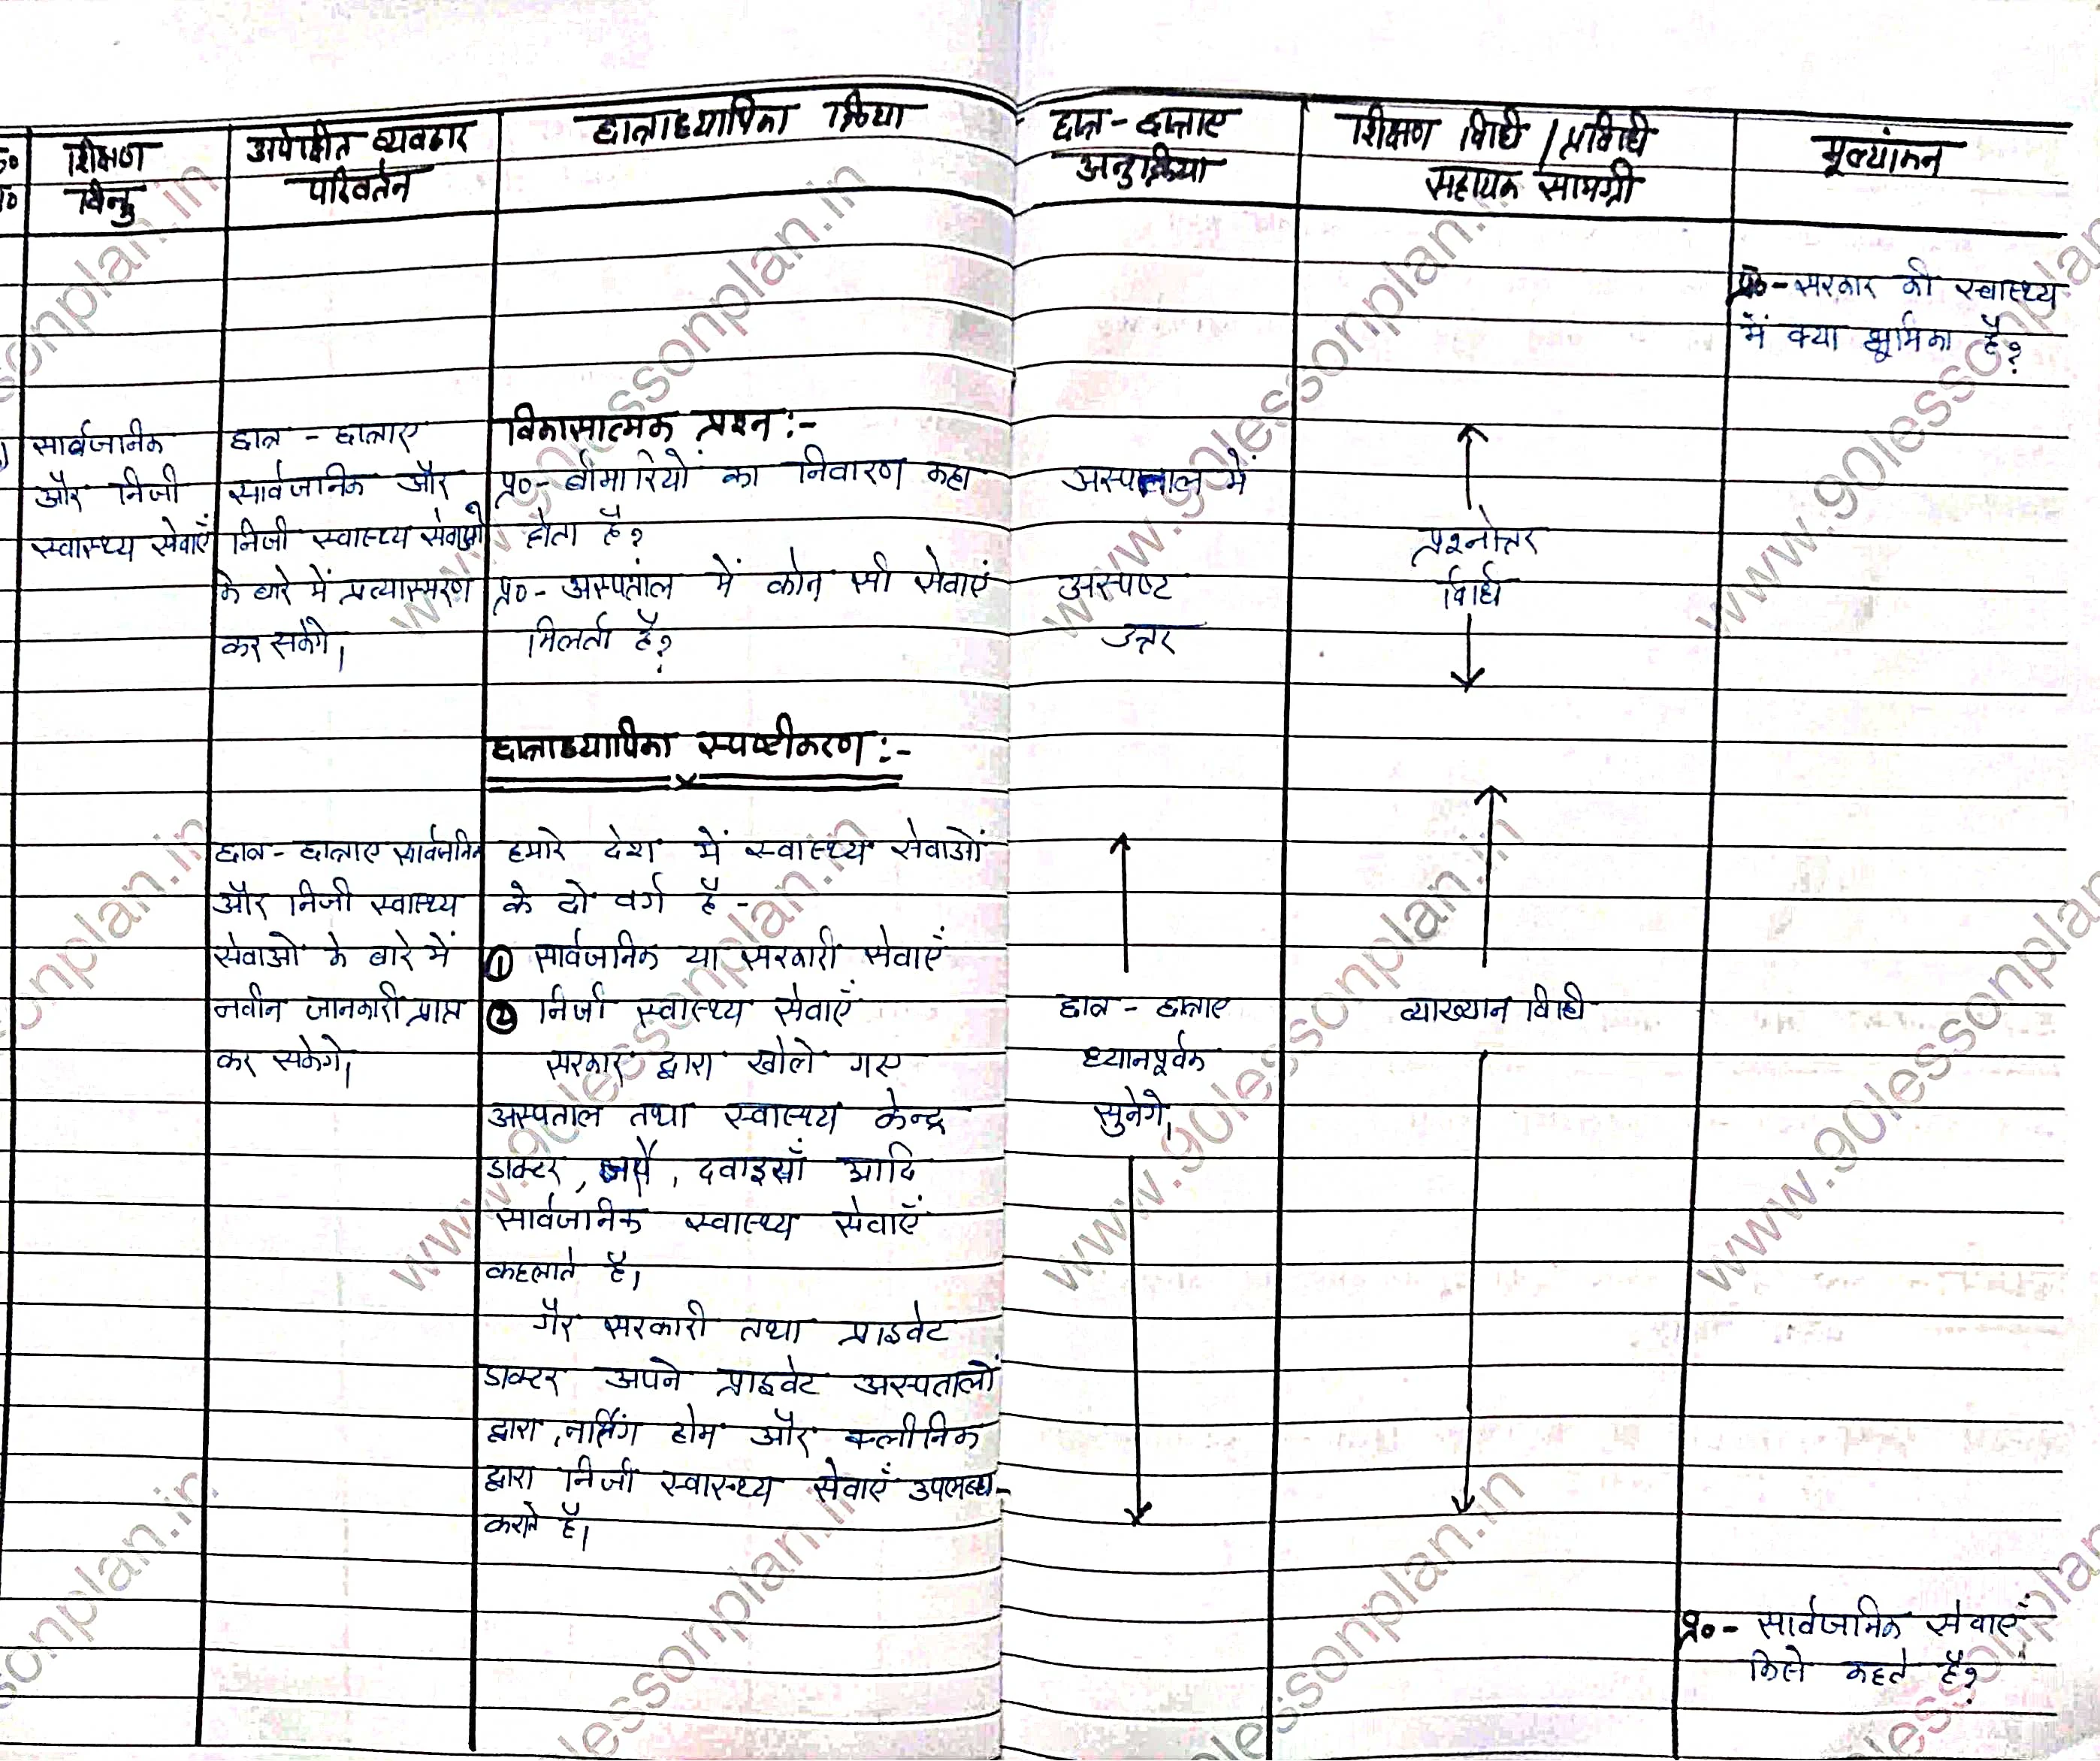 शिक्षण
बिन्दु
अपेक्षित व्यवहार
परिवर्तन
छात्राध्यापिका क्रिया
छात्र - छात्राए
अनुक्रिया
शिक्षण विधि / प्रविधि
सहायक सामग्री
मूल्यांकन
प्र०- सरकार की स्वास्थ्य
में क्या भूमिका है?
सार्वजानिक
और निजी
स्वास्थ्य सेवाएँ
छात्र - छात्राए
सार्वजानिक और
निजी स्वास्थ्य सेवाओं
के बारे में प्रत्यास्मरण
कर सकेंगे।
विकासात्मक प्रश्न :-
प्र०- बीमारियों का निवारण कहा
होता है?
प्र०- अस्पताल में कौन सी सेवाएं
मिलती है?
अस्पताल में
अस्पष्ट
उत्तर
प्रश्नोत्तर
विधि
छात्राध्यापिका स्पष्टीकरण :-
छात्र - छात्राए सार्वजनिक
और निजी स्वास्थ्य
सेवाओं के बारे में
नवीन जानकारी प्राप्त
कर सकेंगे।
हमारे देश में स्वास्थ्य सेवाओं
के दो वर्ग है -
① सार्वजनिक या सरकारी सेवाएँ
② निजी स्वास्थ्य सेवाएँ
सरकार द्वारा खोले गए
अस्पताल तथा स्वास्थ्य केन्द्र
डाक्टर, , दवाइयाँ आदि
सार्वजानिक स्वास्थ्य सेवाएँ
कहलाते है।
गैर सरकारी तथा प्राइवेट
डाक्टर अपने प्राइवेट अस्पतालों
द्वारा, नर्सिंग होम और क्लीनिक
द्वारा निजी स्वास्थ्य सेवाएँ उपलब्ध
कराते है।
छात्र - छात्राए
ध्यानपूर्वक
सुनेगे।
व्याख्यान विधि
प्र०- सार्वजानिक सेवाएँ
किसे कहते है?
www.90lessonplan.in